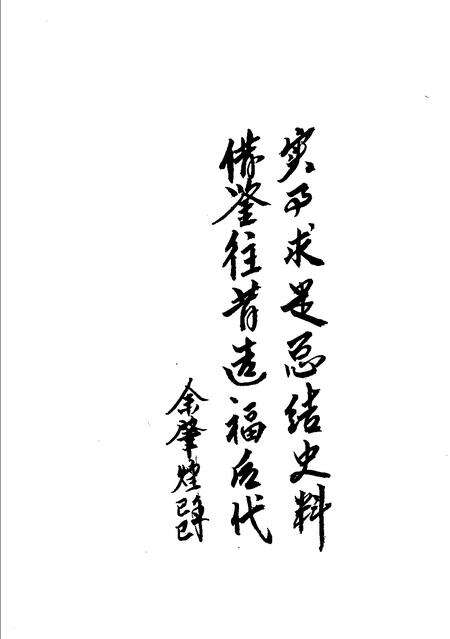 实事求是总结史料
借鉴往昔造福后代
余肇煌